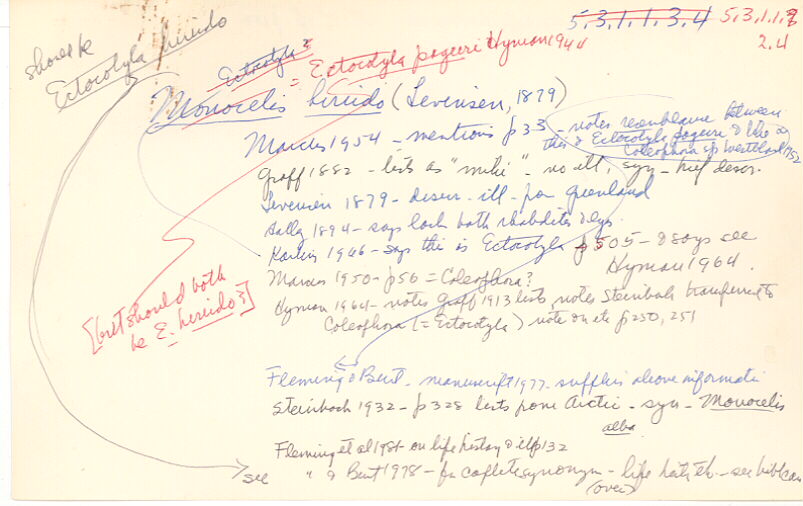 5.3.1.1.3.4 5.3.1.1.
2.4
should be
Ectocotyla hirudo
Ectocotyla?
= Ectocotyla paguri Hyman 1944
Monocelis hirudo (Levinsen, 1879)
Marcus 1954 - mentions p 33 - notes resemblance between
this & Ectocotyla paguri & the
Coleophora sp Westblad 1952
Graff 1882 - lists as "mihi" - no ill, syn - brief descr.
Levinsen 1879 - descr - ill - from Greenland
1894 - says lack both rhabdites & eyes.
Karling 1966 - says this is Ectocotyla p 505 - & says see
Hyman 1964.
Marcus 1950 - p 56 = Coleophora?
Hyman 1964 - notes Graff 1913 lists, notes Steinböck transferred to
Coleophora (= Ectocotyla) note on etc p 250, 251
[but should both
be E. hirudo?]
Fleming & Burt - manuscript 1977 - supplies above informati
Steinböck 1932 - p 328 lists from Arctic - syn - Monocelis
alba
Fleming et al 1981 - on life history & ill p 132
see " & Burt 1978 - for complete synonym - life hist etc - see
(over)